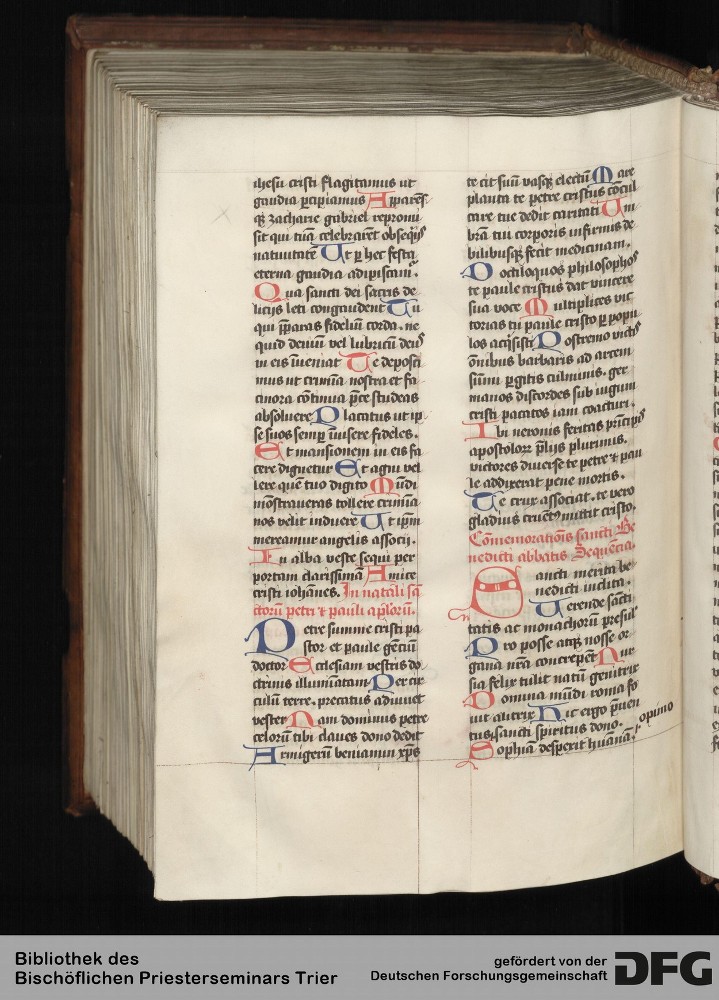 ihesu cristi flagitamus ut
gaudia ꝑcipiamus Apparēs
qz zacharie gabriel repromi
sit qui tuā celebrarēt obsequijs
natiuitatē Ut ꝑ hec festa
eterna gaudia adipiscam̄.
Qua sancti dei sacris de
licijs leti congaudent Tu
qui p̄paras fideliū corda. ne
quid deuiū vel lubricū deus
in eis īueniat Te deposci
mus ut crimīa nostra et fa
cinora cōtinua p̄ce studeas
absoluere Placatus ut ip̄
se suos semꝑ īuisere fideles.
Et mansionem in eis fa
cere dignetur Et agni vel
lere quē tuo digito Mūdi
mōstraueras tollere crimīa
nos velit induere Ut ip̄m
mereamur angelis associj.
In alba veste sequi per
portam clarissimā Amice
cristi iohānes. In natali sā
ctorū petri et pauli apl̄orū.
Petre summe cristi pa
stor et paule gētiū
doctor Ecclesiam vestris do
ctrinis illumīatam Per cir
culū terre. precatus adiuuet
vester Nam dominus petre
celorū tibi claues dono dedit
Armigerū beniamin xp̄s
te cit suū vasqz electū Mare
planta te petre cristus cōcul
care tue dedit caritati Um
brā tui corporis infirmis de
bilibusqz fecit medicinam.
Dociloquos philosophos
te paule cristus dat vincere
sua voce Multiplices vic
torias tu paule cristo ꝑ popu
los acq̄sisti Postremo victis
ōnibus barbaris ad arcem
sūmi ꝑgitis culminis. ger
manos discordes sub iugum
cristi pacatos iam coacturi.
Ibi neronis feritas prīcipes
apostolorꝝ p̄lijs plurimis.
victores diuerse te petre et pau
le addixerat pene mortis.
Te crux associat. te vero
gladius cruētus mittit cristo.
Cōmemorationis sancti Be
nedicti abbatis Sequencia.
Sancti merita be
nedicti inclita.
Uerende sācti
tatis ac monachorum presul'
Pro posse atqz nosse or
gana nr̄a concrepēt Nur
sia felix tulit natū genitrix
Domina mūdi roma fo
uit altrix Hic ergo p̄uen
tus sancti spiritus dono. opimo
Sophia despexit huānā.
Bibliothek des
Bischöflichen Priesterseminars Trier
gefördert von der
Deutschen Forschungsgemeinschaft
DFG